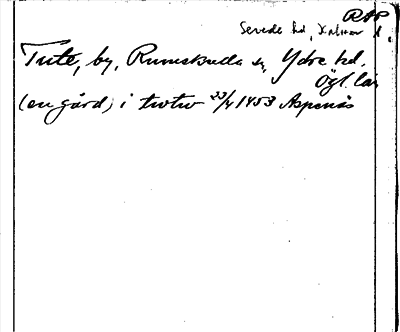 RAP
Sevede hd, Kalmar l.
Tute, by, Rumskulla sn, Ydre hd.
Ögl. län
(en gård) i twtw 23/4 1453 Aspenäs